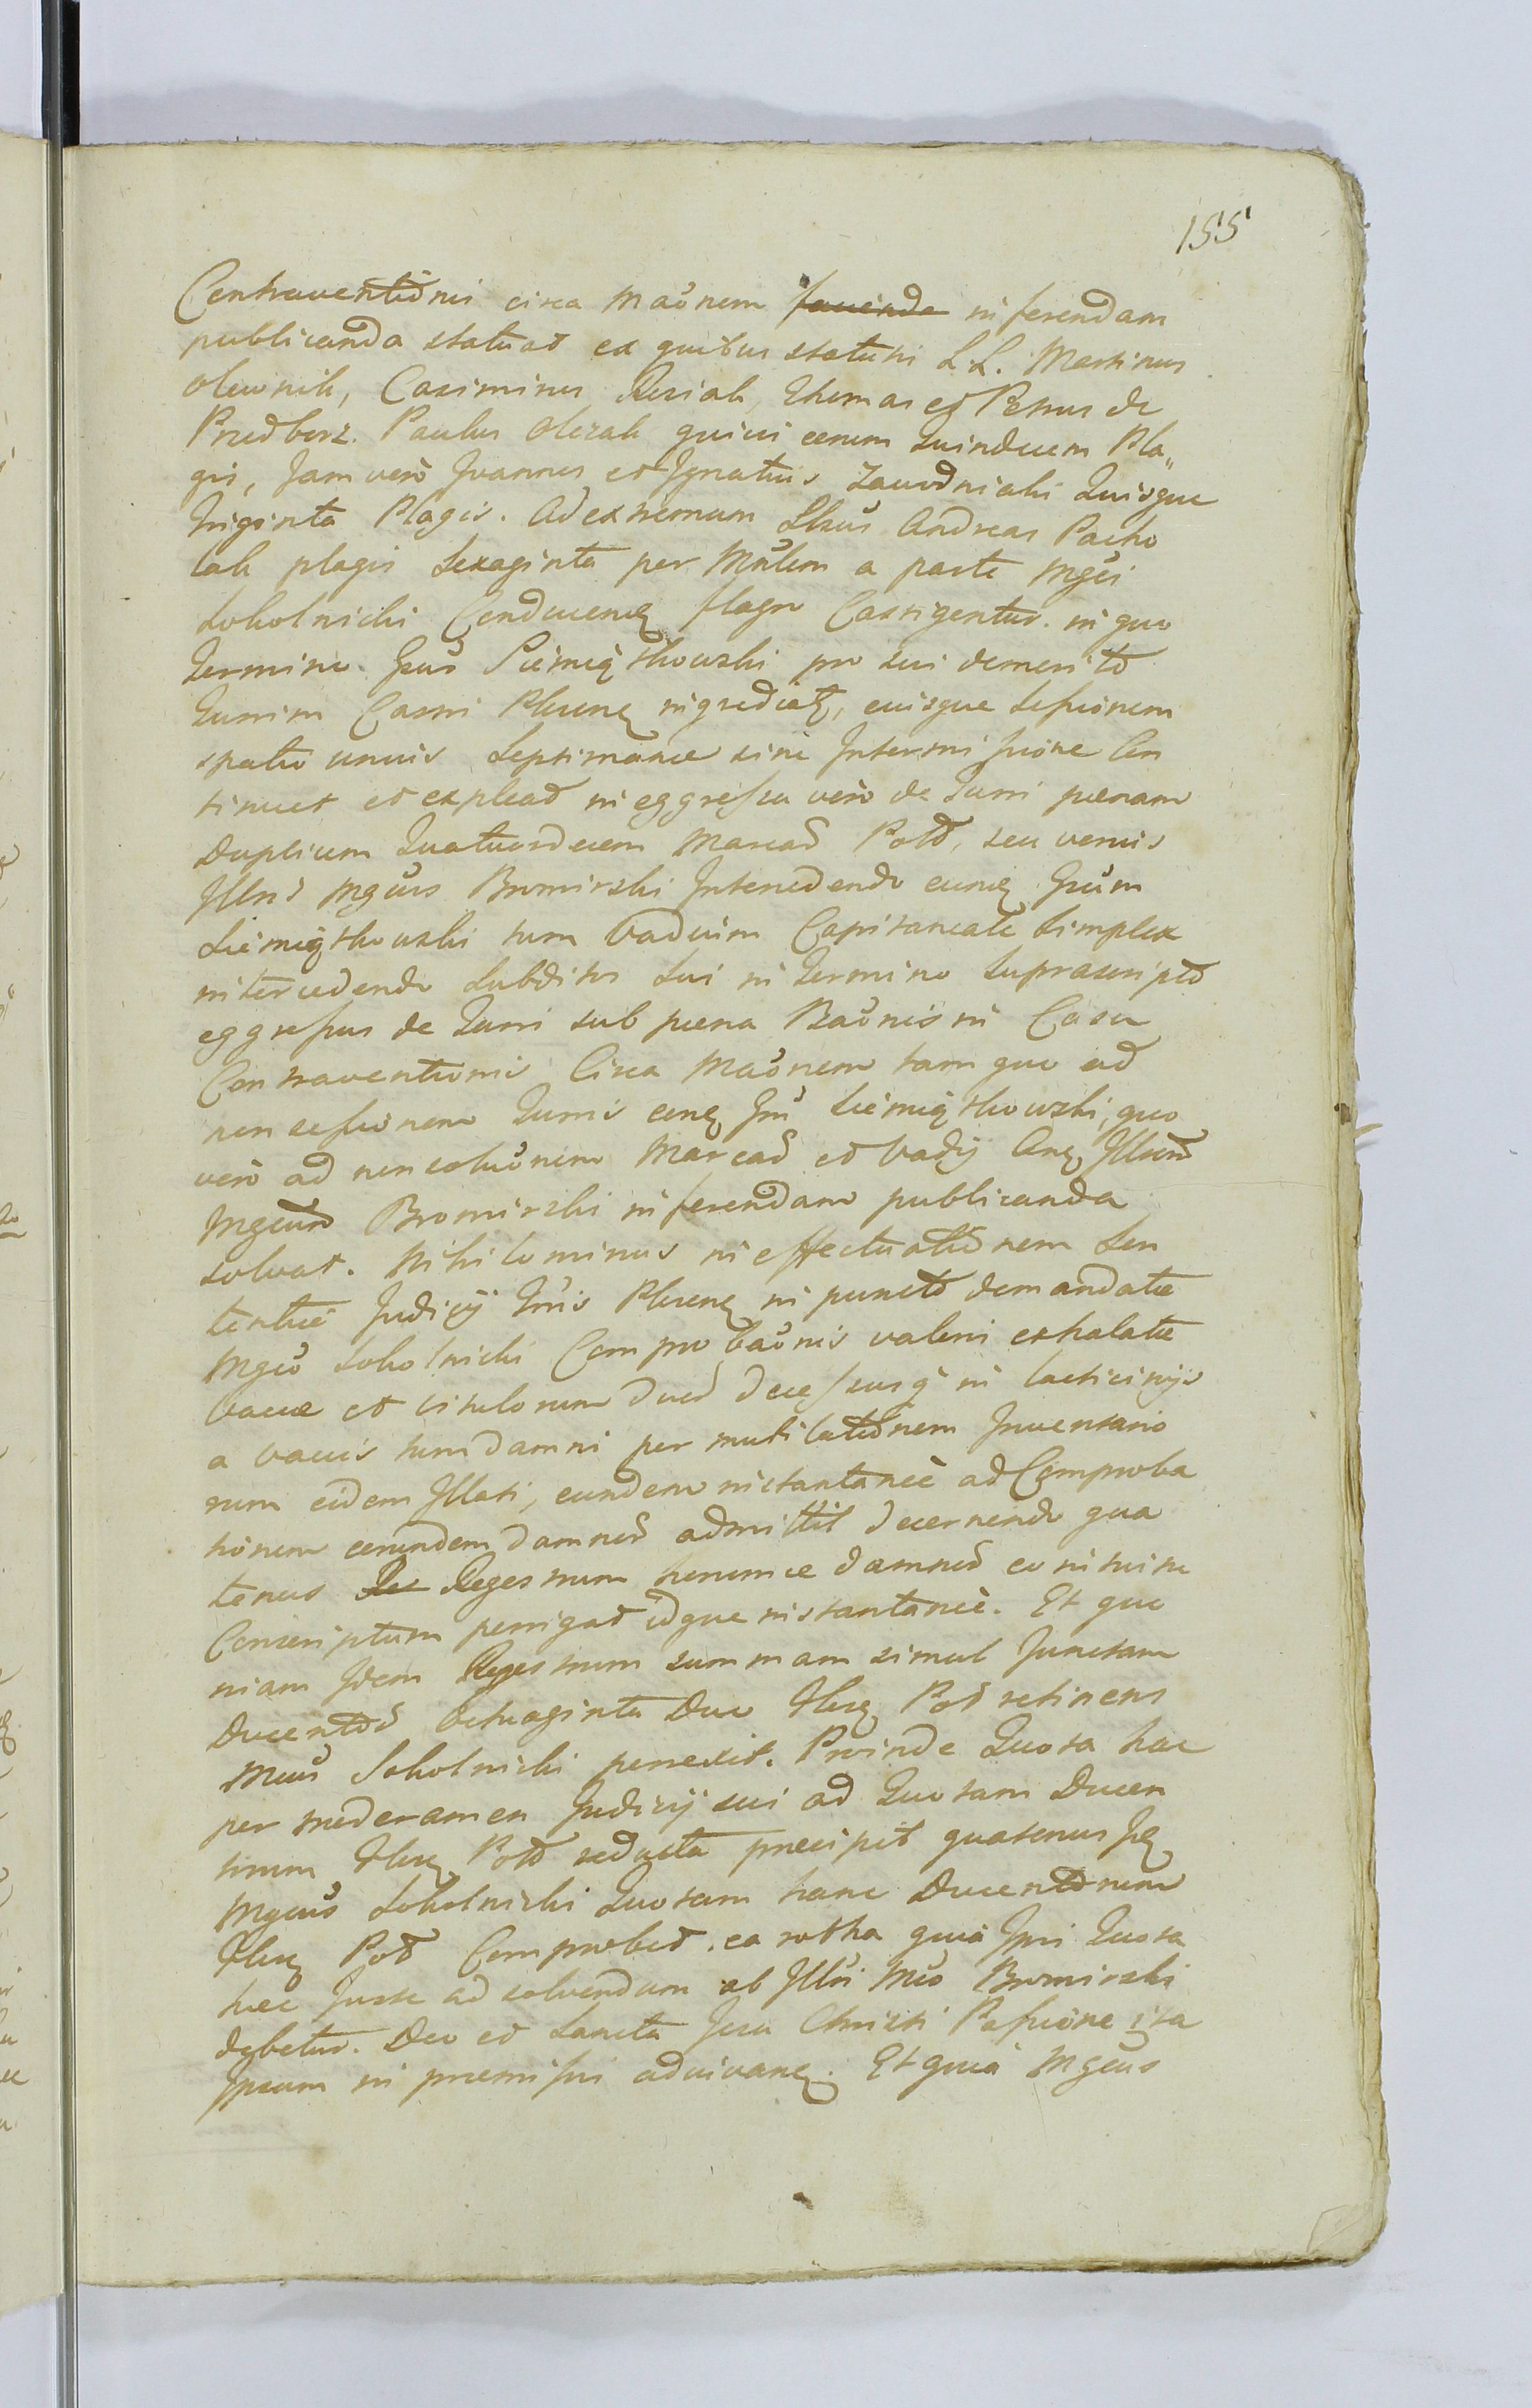 155
Contraventionis circa Maonem favende inferendam
publicanda statuat ex quibus statuti LL. Martinus
Olewnik, Casimirus Resiak, Thomas et Petrus de
Przedborz. Paulus Olczak quivi eorum Quindecem Pla„
gis, Jam vero Joannes et Ignatius Zawodniaki Quisque
Triginta Plagis. Ad extremum Lbsus Andreas Pacho
lak plagis Sexaginta per Mnlem a parte Mgci
Sokolnicki Conducend flagro Castigentur. in quo
Termino Gsus Siemiątkowski pro sui demerito
Turrim Castri Plocen ingrediet, cuisque Sessionem
spatio unius Septimanae sine Intermissione Con
tinuet et expleat in eggressu vero de Turri paenam
Duplicem Quatuordecem Marcad Potd, seu venus
Illris Mgcus Bromirski Intercedendo eund Gsum
Siemiątkowski tum Vadium Capitaneale Simplex
intercedendo Subditos Sui in Termino Suprascripto
eggressus de Turri sub paena Baonis in Casu
Contraventionis Circa Maonem tam quo ad
non sessionem Turris eund Gsu Siemiątkowski, quo
vero ad nonsolutionem Marcad et Vadij And Illrem
Mgcum Bromirski inferendam publicanda
solvat. Nihilominus in effectuationem Sen
tentiae Judicij Tris Plocen in puncto demandatae
Mgco Sokolnicki Comprobaonis valoris exhalatae
Vaccae et vitulorum Duod decessusq in lacticinijs
a vaccis tum damni per mutilationem Inventario
rum eidem Illati, eundem instantanee ad Comproba
tionem eorundem damnod admittit decernendo qua
tenus Re Regestrum horumce damnod eo intuitu
Conscriptum porrigat idque instantanee. Et quo
niam Idem Regestrum summam simul Junctam
Ducentod Octuaginta Duo Flend Potd retinens
Mcus Sokolnicki porrexit. Proinde Quota hac
per moderamen Judicij sui ad Quotam Ducen
torum Flend Potd redacta praecipit quatenus Id
Mgcus Sokolnicki Quotam hanc Ducentorum
Flend Potd Comprobet. ea rotha quia Ipsi Quota
haec Juste ad solvendum ab Illri Mco Bromirski
debetur. Deo et Sancta Jesu Christi Passione ita
Ipsum in praemissis adiuvand. Et quia Mgcus